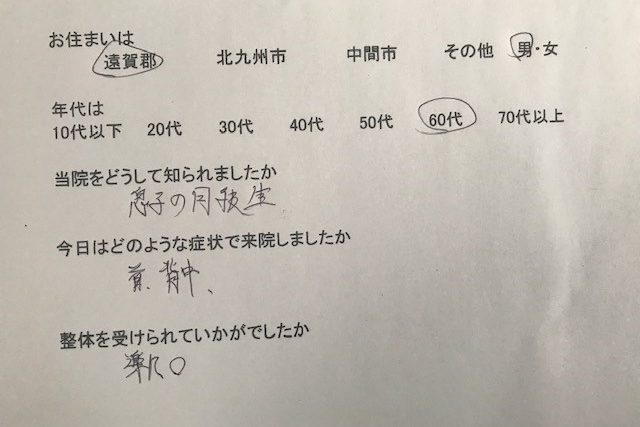 お住まいは
遠賀郡 北九州市 中間市 その他 男・女
年代は
10代以下 20代 30代 40代 50代 60代 70代以上
当院をどうして知られましたか
息子の同級生
今日はどのような症状で来院しましたか
首、背中、
整体を受けられていかがでしたか
楽に○